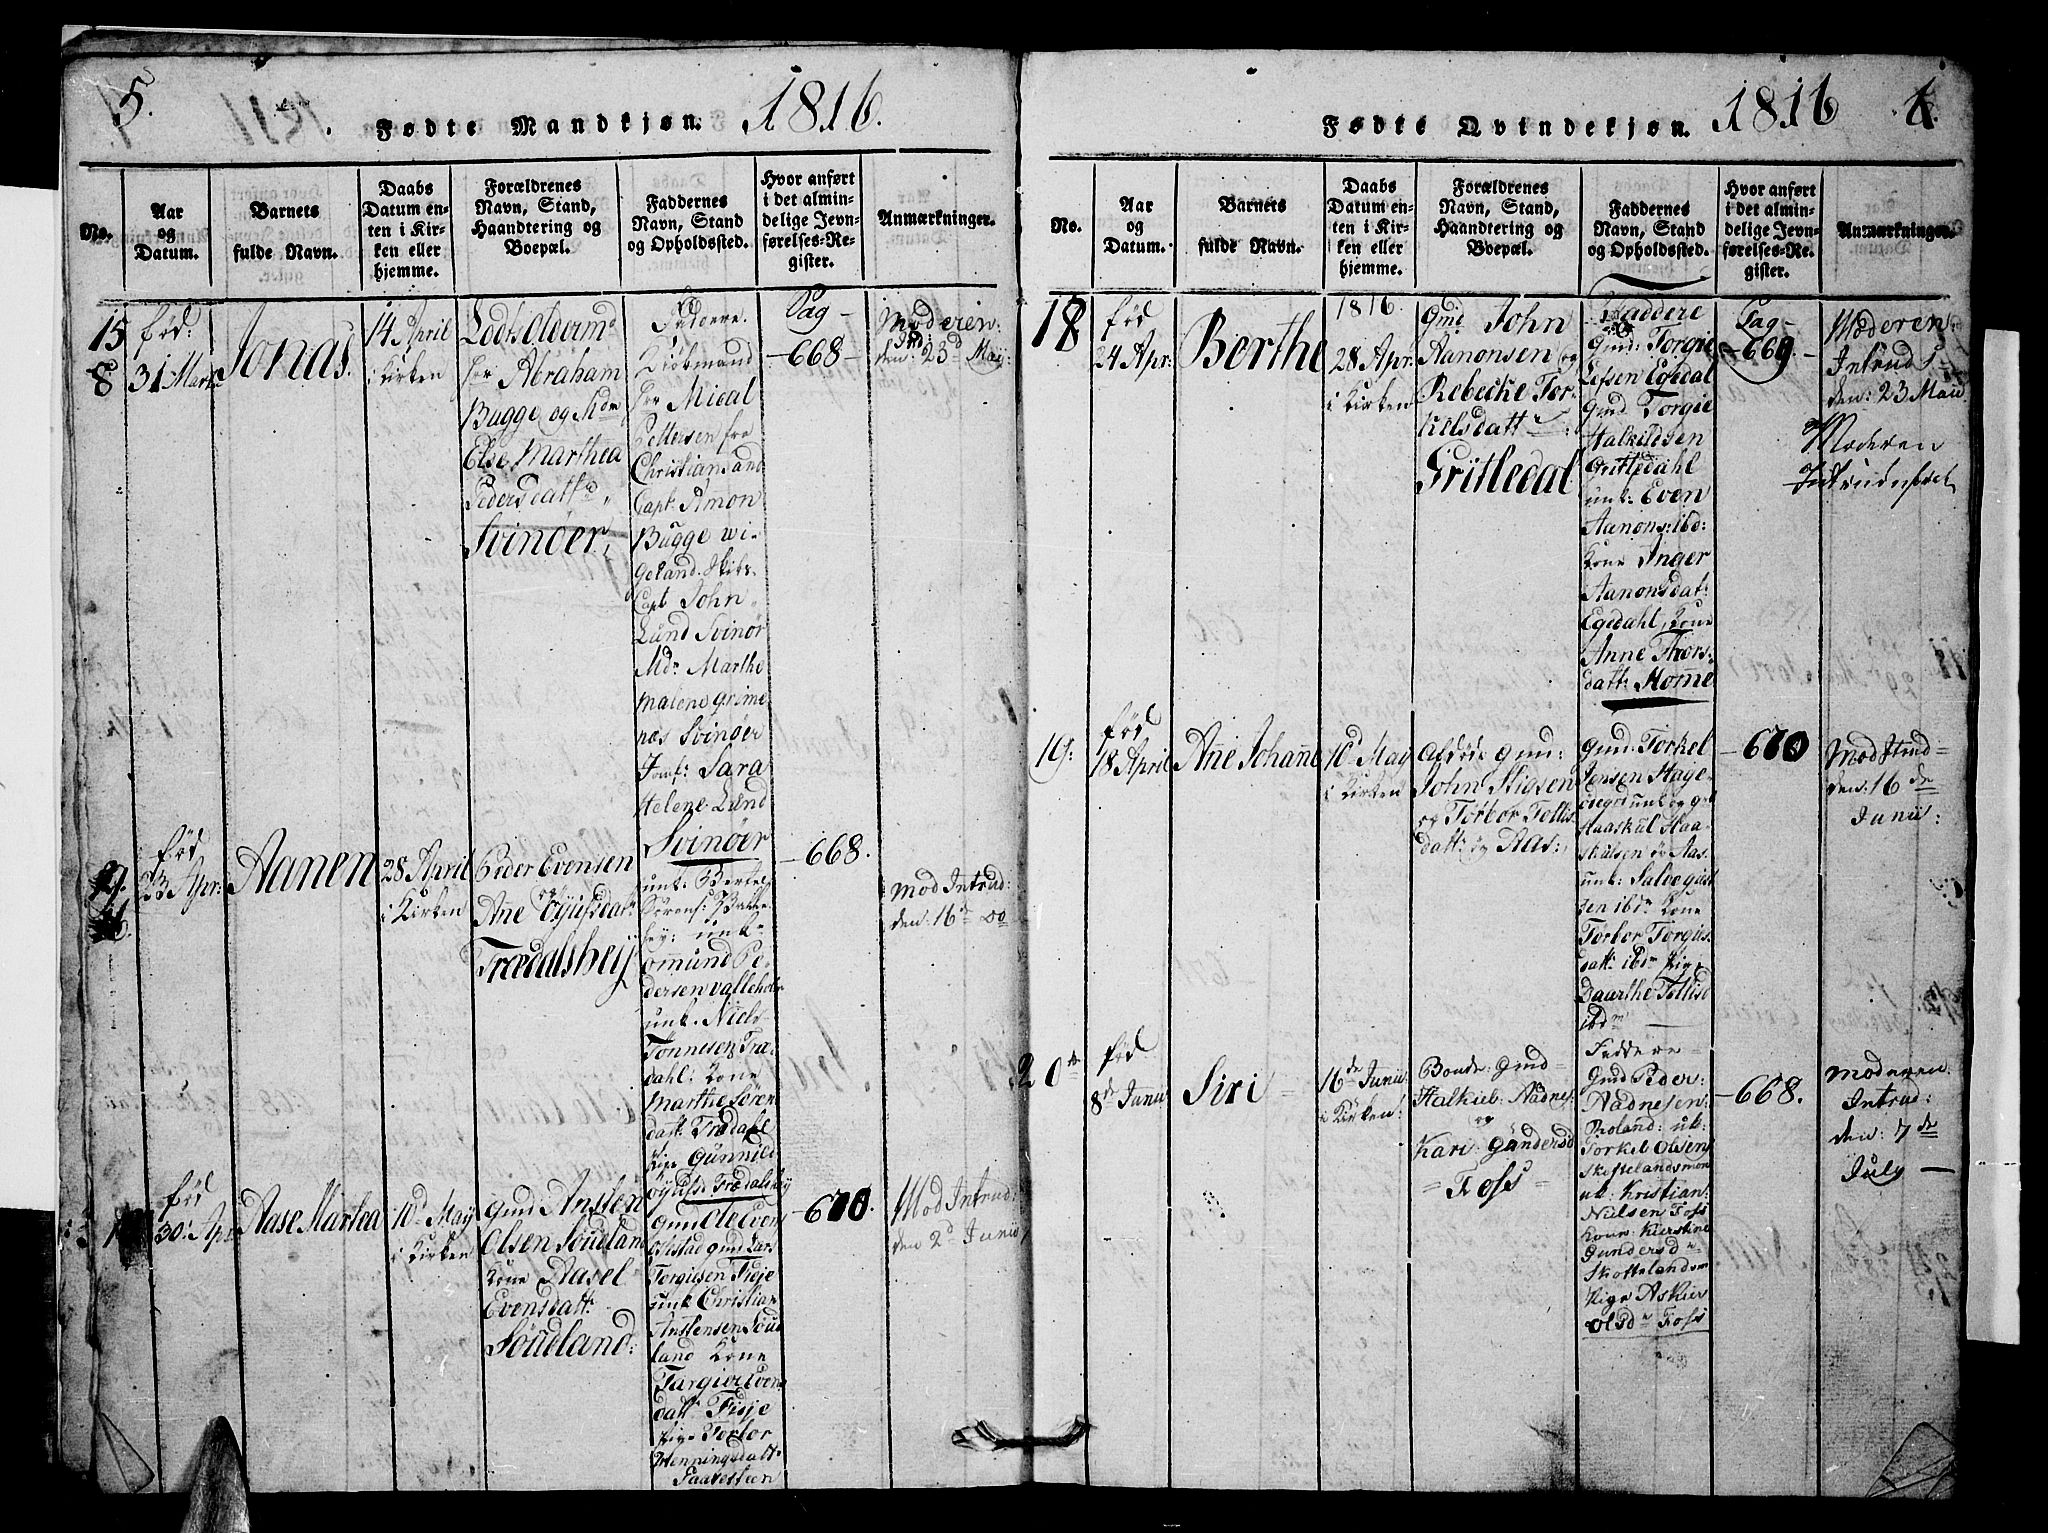 5.
Fødte Mandkjøn. 1816.
No.
Aar
og
Datum.
Barnets
fulde Navn.
Daabs
Datum en-
ten i Kir-
ken eller
hjemme.
Forældrenes
Navn, Stand,
Haandtering og
Boepæl.
Faddernes
Navn, Stand
og Opholdssted.
Hvor anført
i det almin-
delige Jevn-
førelses-Re-
gister.
Anmærkninger.
15
8
fød:
31 Marti
Jonas.
14 April
i Kirken
Lods Olderm
Hr Abraham
Bugge og Mdm
Else Marthea
Pedersdatt
Svinøer
Faddere
Kiøbmand
Hr Mical
Pettersen fra
Christiansand
Capt. Simon
Bugge wi-
geland. Skibs-
Capt John
Lund Svinør
Mdm Marthe
Malene Grime
næs Svinøer
Jomf: Sara
Helene Lund
Svinøer
Pag
-668-
Moderen:
den: 23d May:
9.
fød
23 Apr:
Aanen
28 April
i Kirken
Peder Evensen
og
Ane Øyufsdatt
Trædalshey
unk: Bertel
Sørens: Bakke
hey: unk-
Omund Pe-
dersen Valleheie
unk. Niels
Tønnesen Træ
dahl: Kone
Marthe Søren
datt: Trædahl
Pige Gunnild
Øyufsd: Trædalshey
-668.
Mod Intrud:
den: 16d
fød
30: Apr
Aase Martea
10d May
i Kirken
Gmd Ansten
Olsen Søudland
Kone Aasel
Evensdatt:
Søudland:
Gmd Ole Even
Gmd Lars
Torgiusen Fidje
unk Christian
Anstensen Søud
land Kone
Targier Even
datt: Fidje
Pige Torbor
Henningsdatt
Faarestein
-670.
Mod Intrud:
den 2d Junii
Fødte Qvindekjøn. 1816
No.
Aar
og
Datum.
Barnets
fulde Navn.
Daabs
Datum en-
ten i Kir-
ken eller
hjemme.
Forældrenes
Navn, Stand,
Haandtering og
Boepæl.
Faddernes
Navn, Stand
og Opholdssted.
Hvor anført
i det almin-
delige Jevn-
førelses-Re-
gister.
Anmærkninger.
18
fød
24 Apr:
Berthe
1816.
28 Apr:
i Kirken
Gmd John
Aanonsen og
Rebecke Tor-
kilsdatt
Gritledal
Faddere
Gmd: Torgie
Lefsen Egedal
Gmd Torgie
Halkildsen
Gritledahl
unk: Even
Aanons: ibd:
Kone Inger
Aanonsdat
Egedahl, Kone
Anne Thors-
datt: Home
Pag-
-669.
Moderen
Intrud
den: 23 Maii
Moderen
19:
fød
18 April
Ane Johane
10d May
i Kirken
Afdøde Gmd:
John Stigsen
og Torbor Tollis
datt: Aas:
Gmd: Torkel
Jensen Hage-
Haaskul Haa-
skulsen Aas.
unk: Salve
sen ibdm Kone
Torbor Torgius
datt: ibdm Pige
Baarthe Tollisd
ibdm
-670
Mod Intrud
den: 16de
Junii:
20de
fød
8de Junii
Siri
16de Junii
i Kirken:
Bonde: Gmd
Halkiel: Aadnes:
og
Kari: Gundersd
= Foss =
Faddere
Gmd Peder
Aadnesen:
Roland: uk:
Torkel Olsen
Skottelandsmoen
uk: Kristian:
Nielsen Foss
Kone Kierstine
Gundersd
Skottelandsm
Pige Askier
Olsd Foss
-668.
Moderen
Intrud:
den: 7de
July —